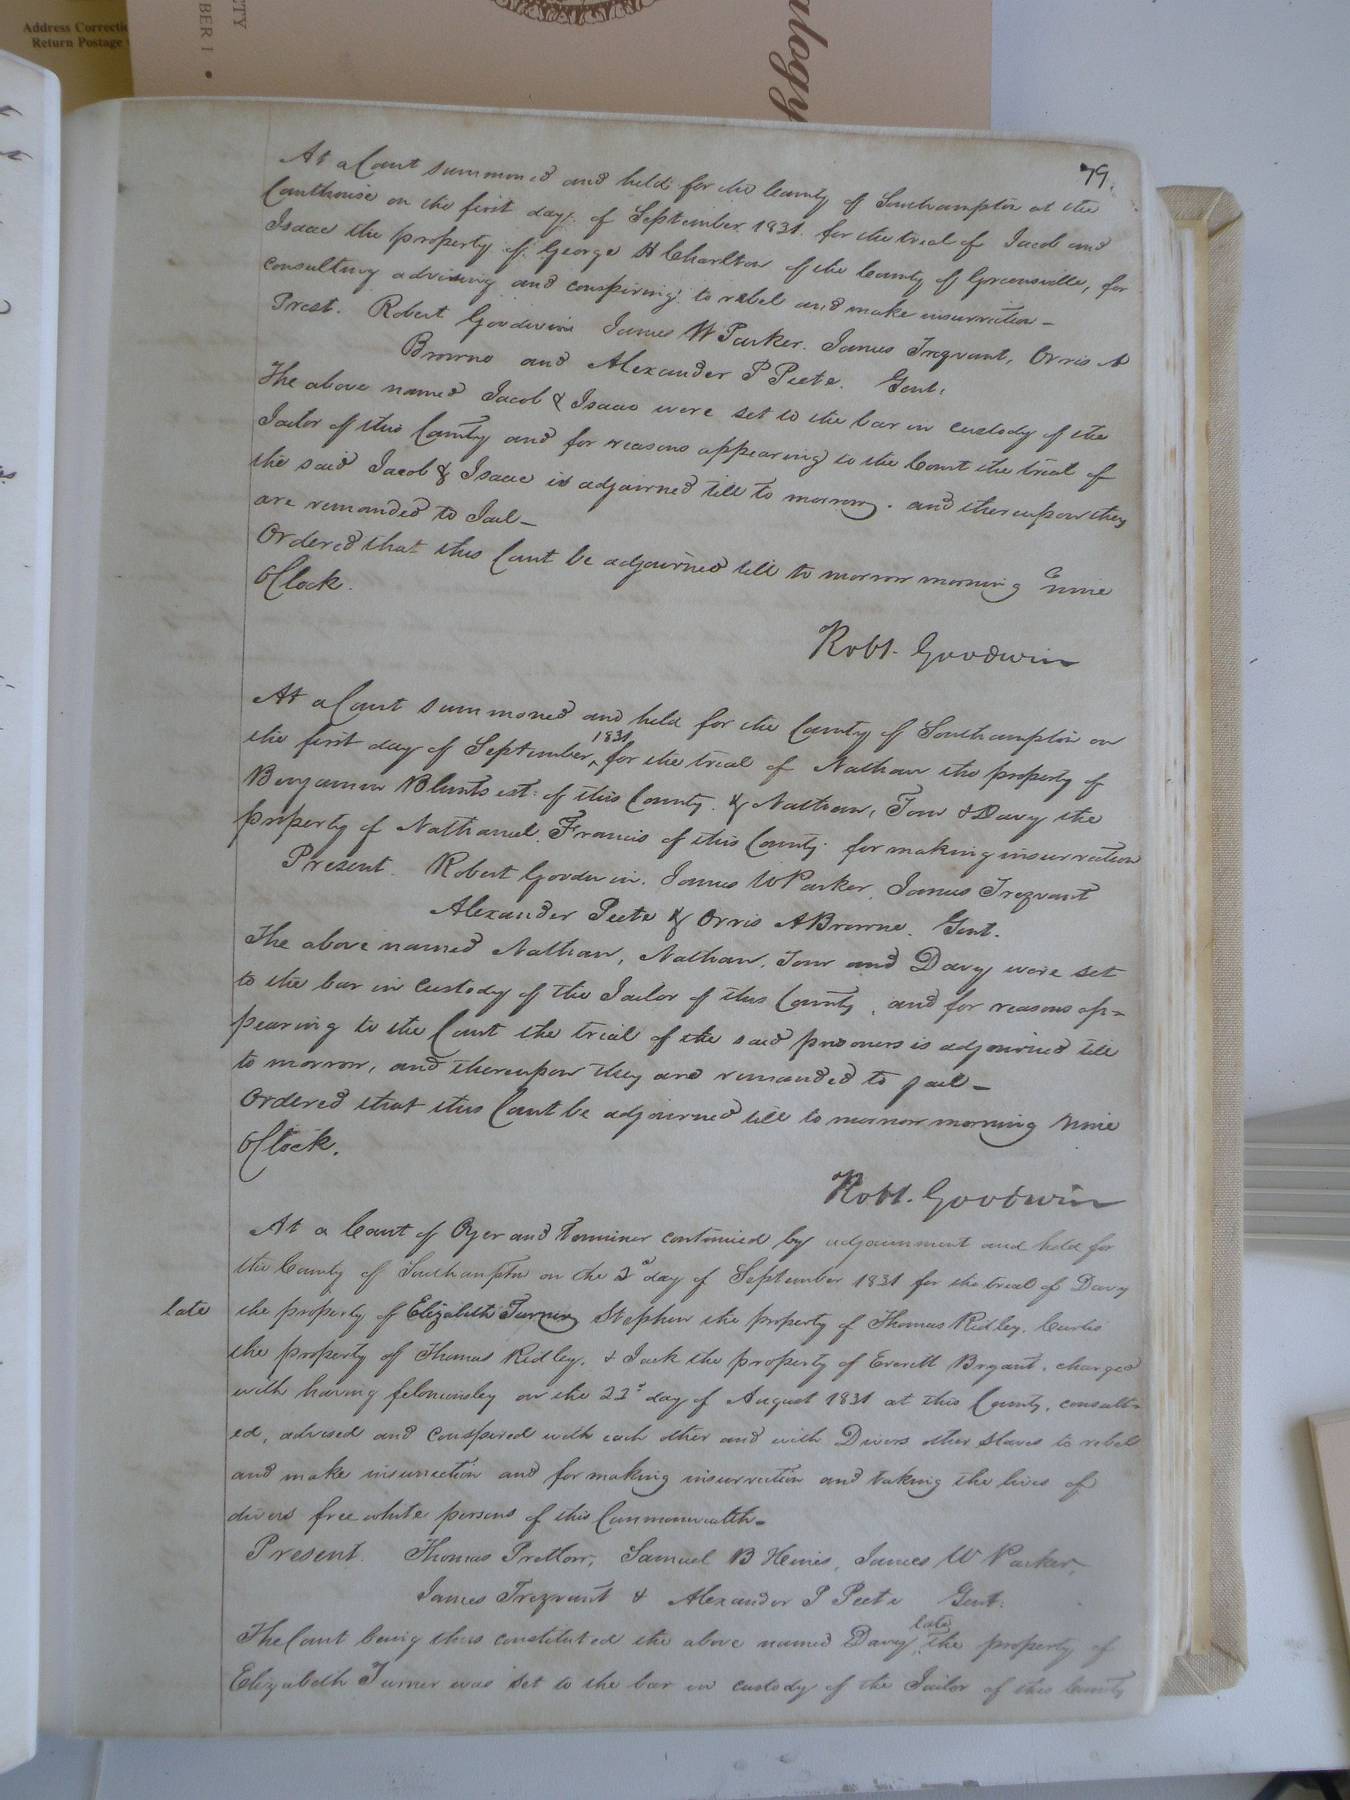 Address Correctio
Return Postage
BER 1 •
TY
alogy
79.
At a Court summoned and held for the County of Southampton at the
Courthouse on the first day of September 1831 for the trial of Jacob and
Isaac the property of George H Charlton of the County of Greensville, for
consulting advising and conspiring to rebel and make insurrection –
Prest. Robert Goodwin James W Parker. James Trezvant, Orris A
Browne and Alexander P Peete. Gent.
The above named Jacob & Isaac were set to the bar in custody of the
Jailor of this County and for reasons appearing to the Court the trial of
the said Jacob & Isaac is adjourned till to morrow. and thereupon they
are remanded to Jail –
Ordered that this Court be adjourned till to morrow morning nine
OClock.
Robt. Goodwin
At a Court summoned and held for the County of Southampton on
the first day of September ^ 1831 for the trial of Nathan the property of
Benjamin Blunts est: of this County & Nathan, Tom & Davy the
property of Nathaniel Francis of this County for making insurrection
Present. Robert Goodwin. James W Parker, James Trezvant
Alexander Peete & Orris A Browne. Gent.
The above named Nathan, Nathan, Tom and Davy were set
to the bar in custody of the Jailor of this County, and for reasons ap=
pearing to the Court the trial of the said prisoners is adjourned till
to morrow, and thereupon they are remanded to jail –
Ordered that this Court be adjourned till to morrow morning nine
OClock.
Robt. Goodwin
At a Court of Oyer and Terminer continued by adjournment and held for
the County of Southampton on the 2d day of September 1831 for the trial of Davy
late the property of Elizabeth Turner, Stephen the property of Thomas Ridley, Curtis
the property of Thomas Ridley, & Jack the property of Everett Bryant, charged
with having feloniously on the day of August 1831 at this County, consult=
ed, advised and conspired with each other and with Divers other slaves to rebel
and make insurrection and for making insurrection and taking the lives of
divers free white persons of this Commonwealth –
Present. Thomas Pretlow, Samuel B Hines, James W Parker,
James Trezvant & Alexander P Peete Gent.
The Court being thus constituted the above named Davy late the property of
Elizabeth Turner was set to the bar in custody of the Jailor of this County